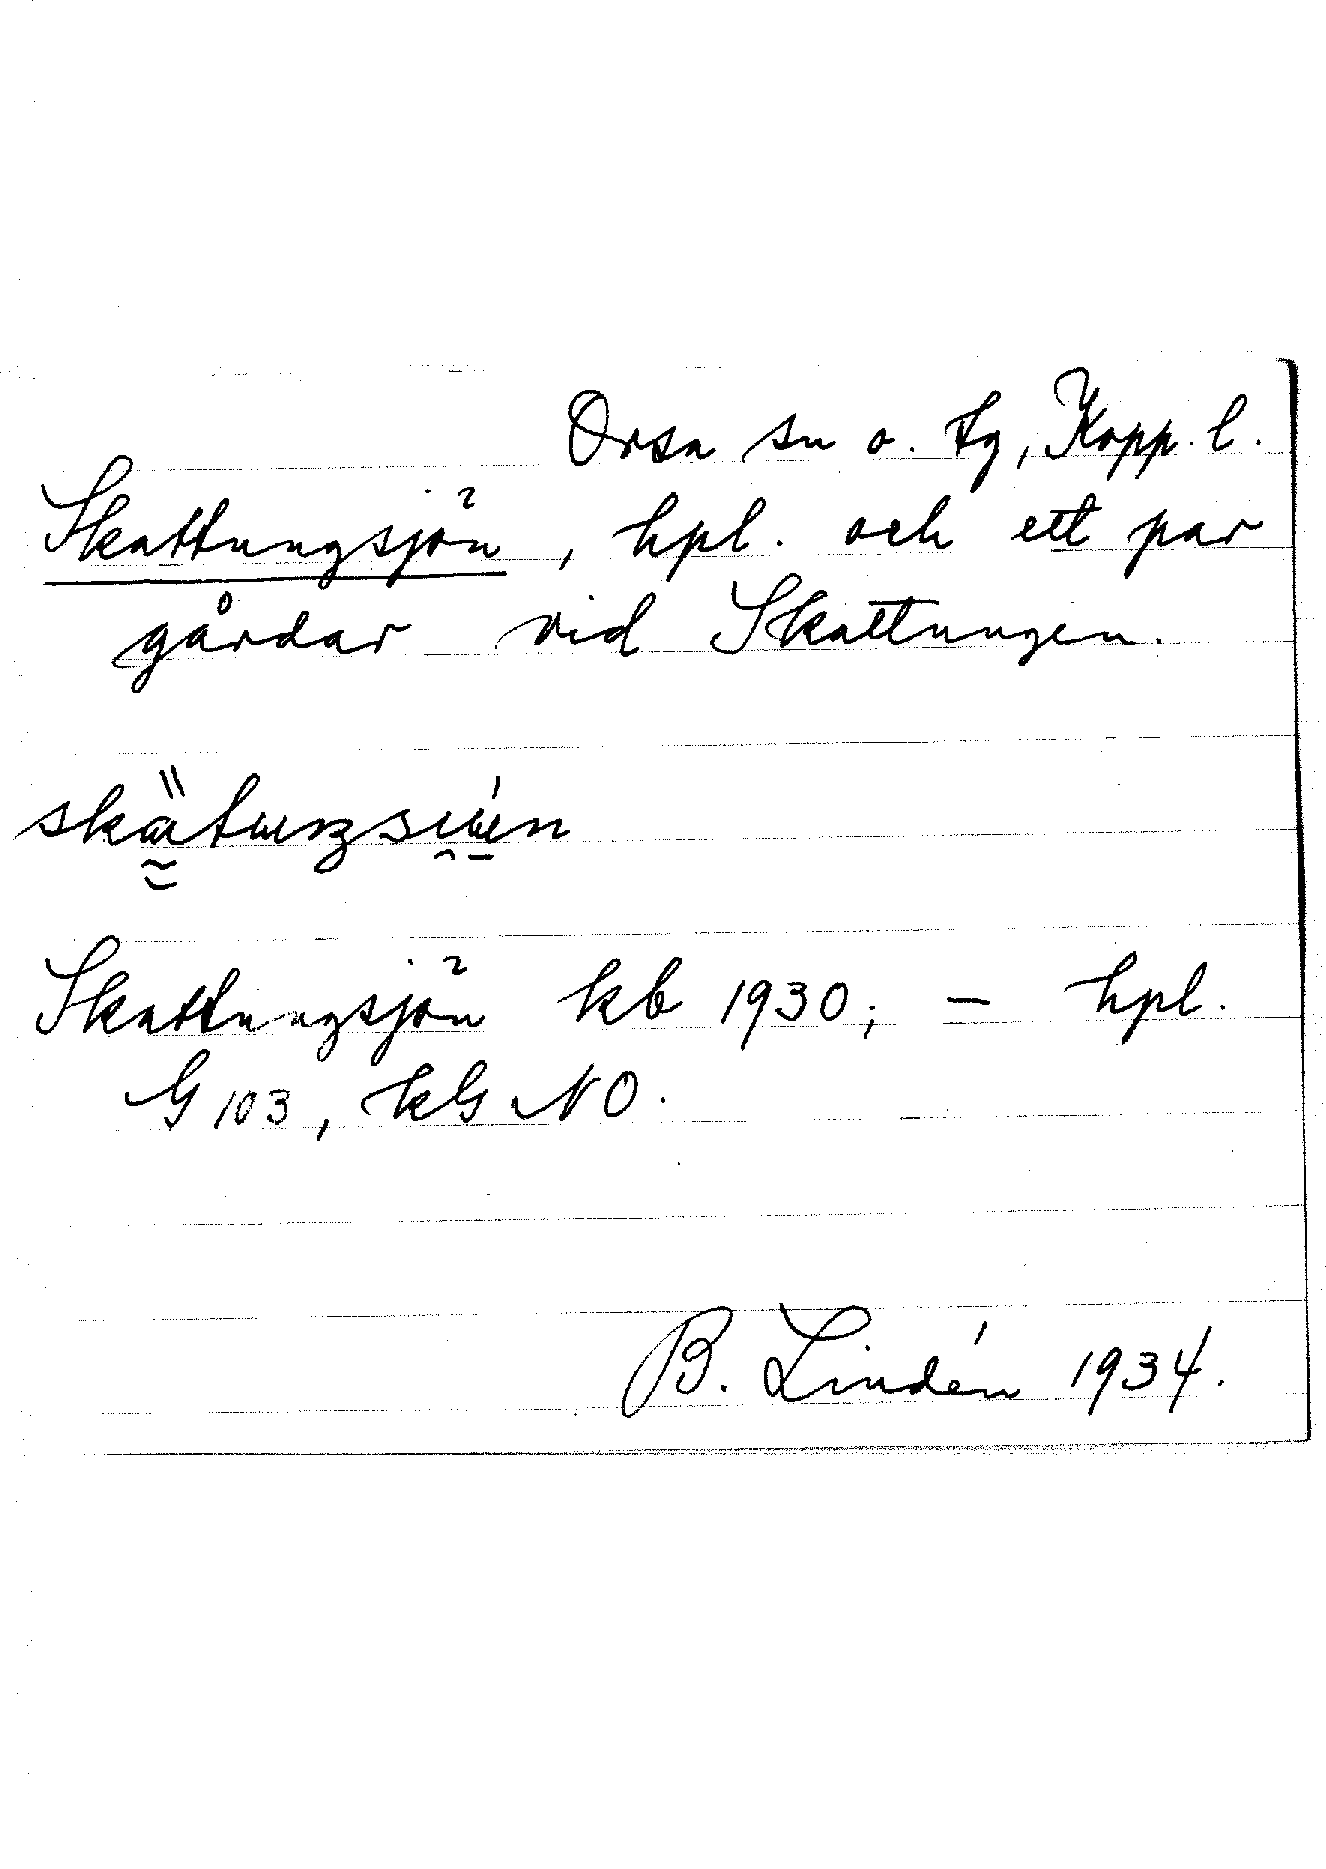 Orsa sn o. tg, Kopp. l.
Skattungsjön, hpl. och ett par
gårdar vid Skattungen.
Skattungsjön kb 1930; — hpl.
G 103, kG NO.
B. Lindén 1934.